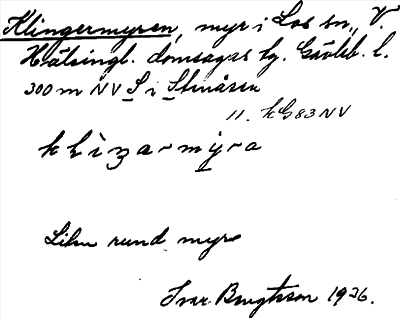 Klingermyren, myr i Los sn., V.
Hälsingl. domsagas tg. Gävleb. l.
300 m NV S i Stenåsen
11. kG83NV
Liten rund myr
Ivar Bengtsson 1936.